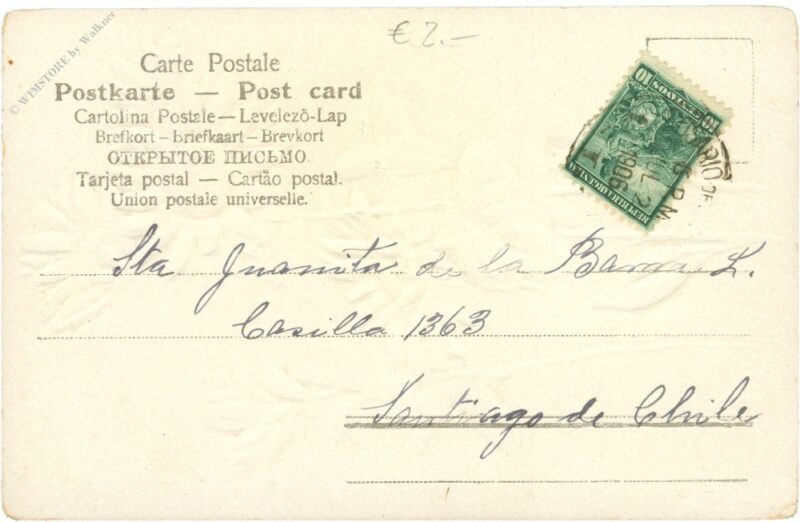 © WIMSTORE by Walkner
€ 2.-
Carte Postale
Postkarte — Post card
Cartolina Postale — Levelező-Lap
Brefkort – Briefkaart – Brevkort
ОТКРЫТОЕ ПИСЬМО
Tarjeta postal — Cartão postal.
Union postale universelle.
10 CENTAVOS 10
REPUBLICA ARGENTINA
JUL 2
6 P.M
1906
Sta Juanita de la Barra L.
Casilla 1363
Santiago de Chile